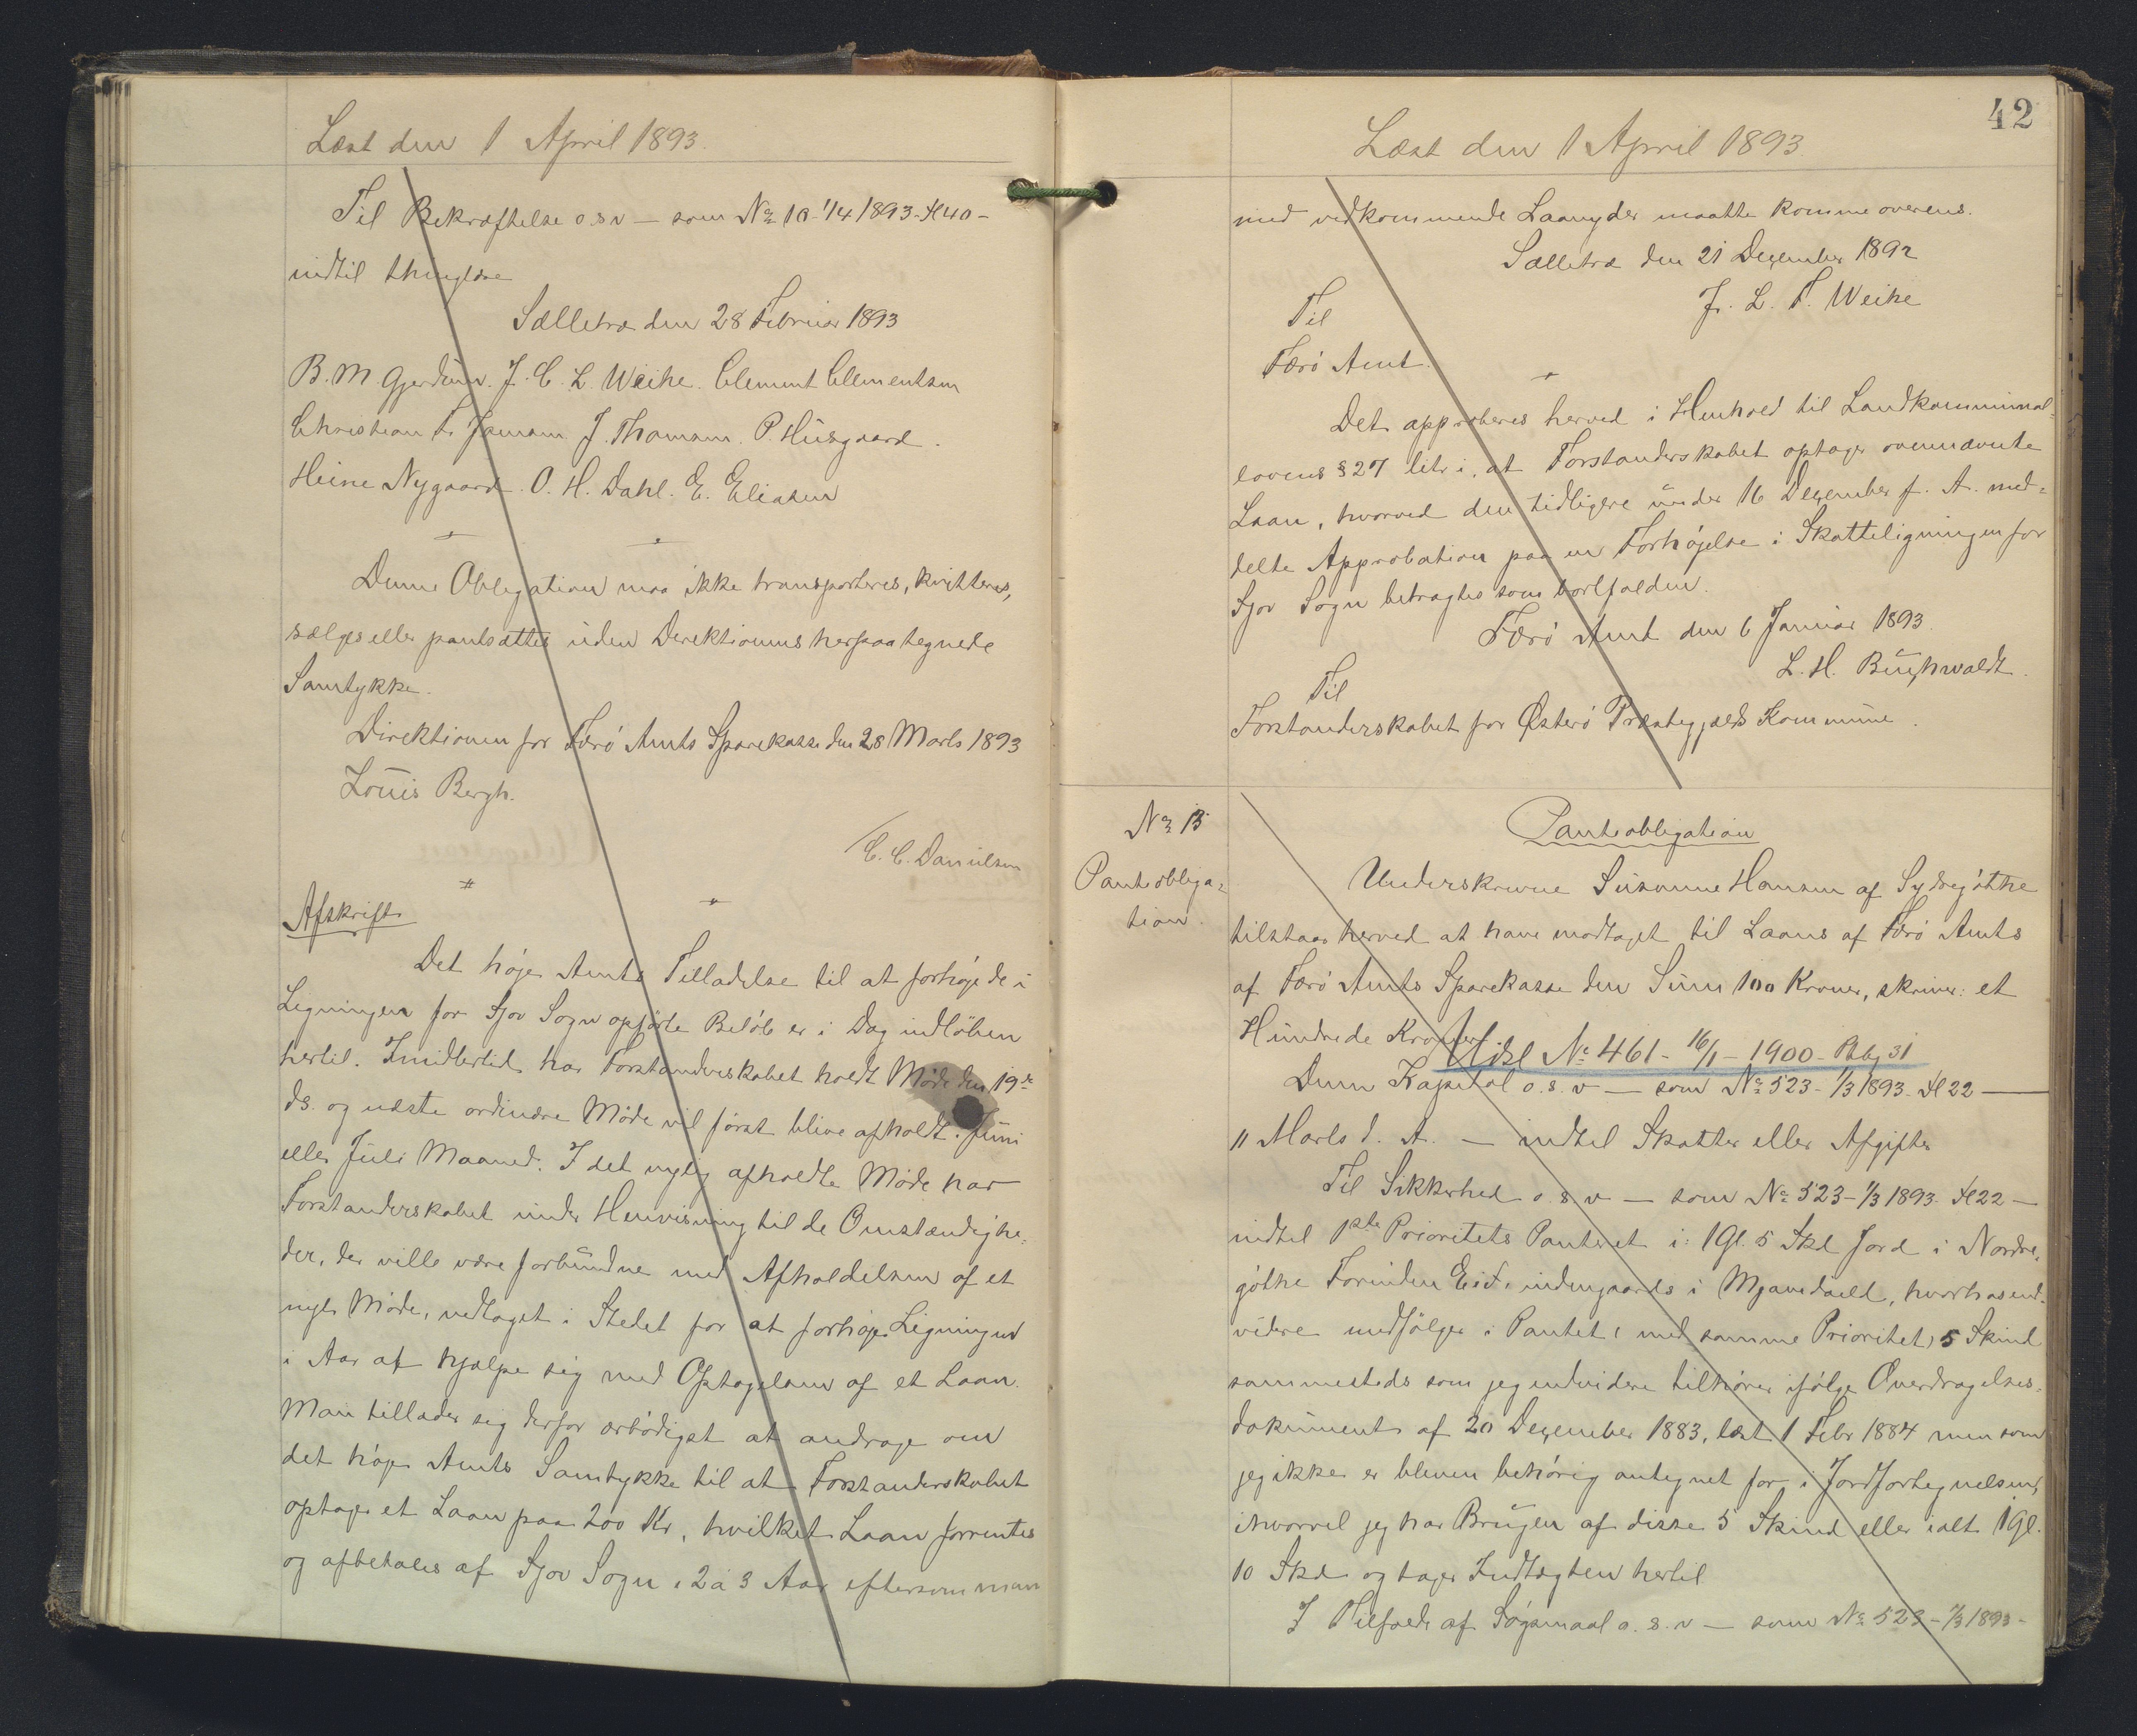 Læst den 1 April 1893.
Til Bekræftelse o.s.v — som No 10 - 1/4 1893 - H 40 -
indtil thinglæse
Sælletræ den 28 Februar 1893
B. M. Gjerdum. J. C. L. Weihe. Clement Clementsen
Christian F. Jensen. J. Thomsen. P. Husgaard.
Heine Nygaard. O. H. Dahl. E. Eliasen
Denne Obligation maa ikke transporteres, kvitteres,
sælges eller pantsættes uden Direktionens herpaa tegnede
Samtykke.
Direktionen for Færø Amts Sparekasse den 28 Marts 1893
Louis Bergh.
C. C. Danielsen
Afskrift
Det høje Amts Tilladelse til at forhøje de i
Ligningen for Sjov Sogn opførte Beløb er i Dag indløben
hertil. Imidlertid har Forstanderskabet holdt Møde den 19de
ds. og næste ordinære Møde vil først blive afholdt i Juni
eller Juli Maaned. I det nylig afholdte Møde har
Forstanderskabet under Henvisning til de Omstændighe-
der, der ville være forbundne med Afholdelsen af et
nyt Møde, vedtaget i Stedet for at forhøje Ligningen
i Aar at hjælpe sig med Optagelsen af et Laan.
Man tillader sig derfor ærbødigst at andrage om
det høje Amts Samtykke til at Forstanderskabet
optager et Laan paa 200 Kr, hvilket Laan forrentes
og afbetales af Sjov Sogn i 2 à 3 Aar eftersom man
42
Læst den 1 April 1893
med vedkommende Laangyder maatte komme overens.
Sælletræ den 21 Dezember 1892
J. L. F. Weihe
Til
Færø Amt.
Det approberes herved i Henhold til Landkommunal-
lovens § 27 litr i, at Forstanderskabet optager ovennævnte
Laan, hvorved den tidligere under 16 Dezember f. A. med-
delte Approbation paa en Forhøjelse i Skatteligningen for
Sjov Sogn betragtes som bortfalden.
Færø Amt den 6 Januar 1893.
L. H. Buchwaldt.
Til
Forstanderskabet for Østerø Præstegjælds Kommune.
No 13
Panteobliga-
tion.
Panteobligation
Underskrevne Susanne Hansen af Sydregøthe
tilstaar herved at have modtaget til Laans af Færø Amts
af Færø Amts Sparekasse den Sum 100 Kroner, skriver: et
Hundrede Kroner.
Udsl No 461 - 16/1 - 1900 - Pbg 31
Denne Kapital o.s.v — som No 523 - 1/3 1893 - H 22 —
11 Marts d. A. — indtil Skatter eller Afgifter
Til Sikkerhed o.s.v — som No 523 - 1/3 1893. H 22 —
indtil 1ste Prioritets Panteret i: 1 Gl. 5 Skd Jord i Nordre-
gøthe Forinden Eid. indengaards i Mjavedæld, hvorhos end-
videre medfølger i Pantet (med samme Prioritet) 5 Skind
sammesteds som jeg endvidere tilhører ifølge Overdragelses-
dokument af 20 Dezember 1883, læst 1 Febr 1884 men som
jeg ikke er bleven behørig antegnet for i Jordfortegnelsen,
ihvorvel jeg har Brugen af disse 5 Skind eller ialt 1 Gl.
10 Skd og tager Indtægten hertil
I Tilfælde af Søgsmaal o.s.v — som No 523 - 1/3 1893 -